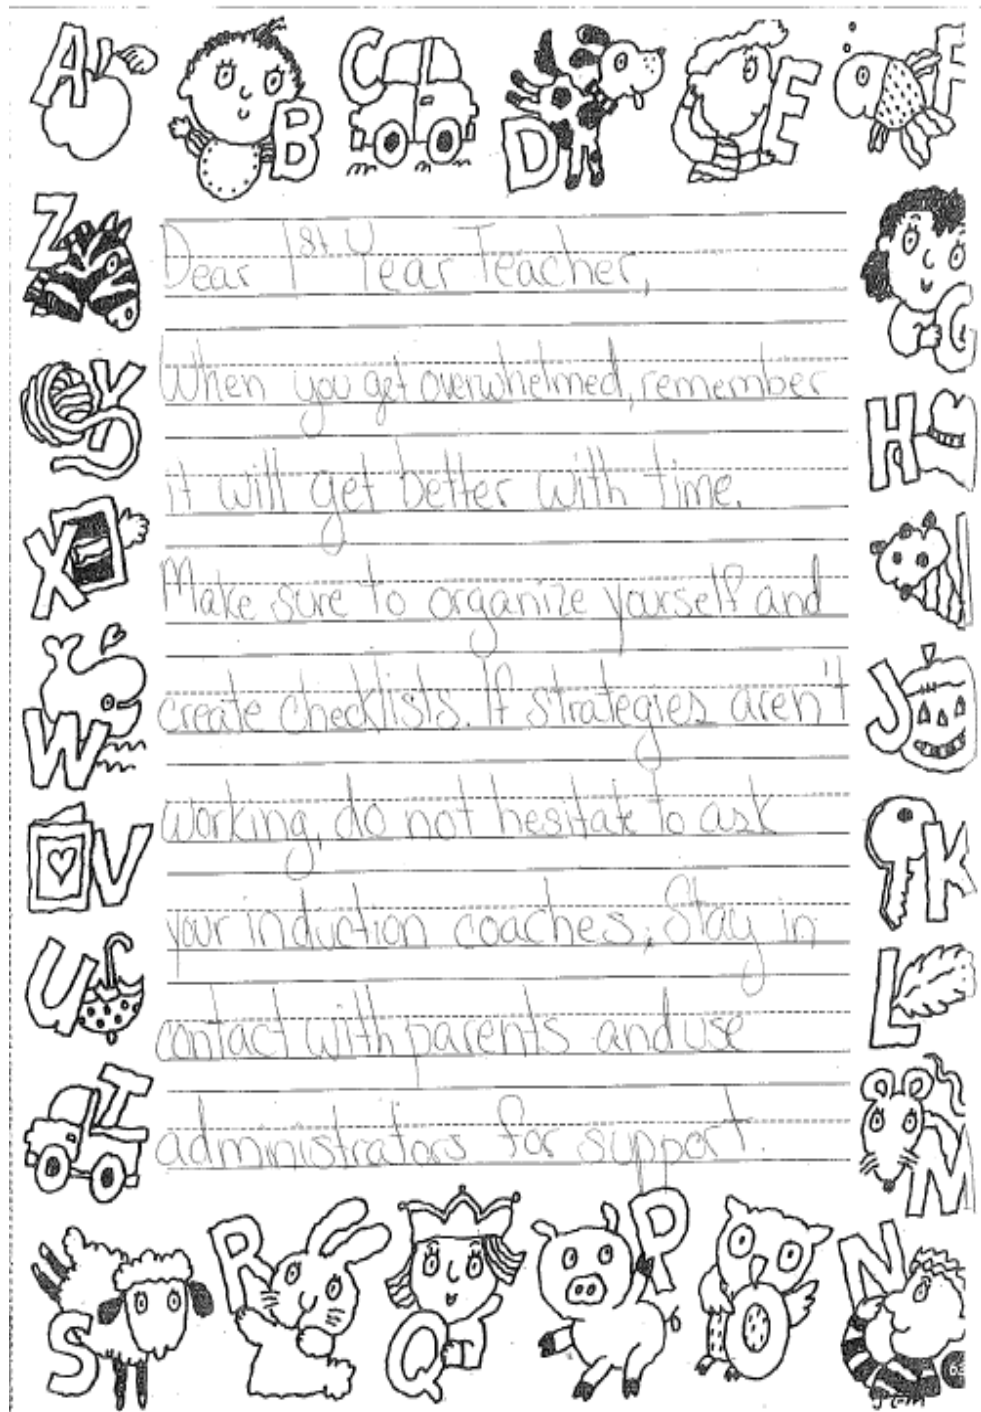 A
B
C
D
E
F
Z
Dear 1st Year Teacher,
G
Y
When you get overwhelmed, remember
H
it will get better with time.
X
Make sure to organize yourself and
W
create checklists. If strategies aren't
J
V
working, do not hesitate to ask
K
U
your induction coaches. Stay in
L
contact with parents and use
T
administrators for support.
M
S
R
Q
P
O
N